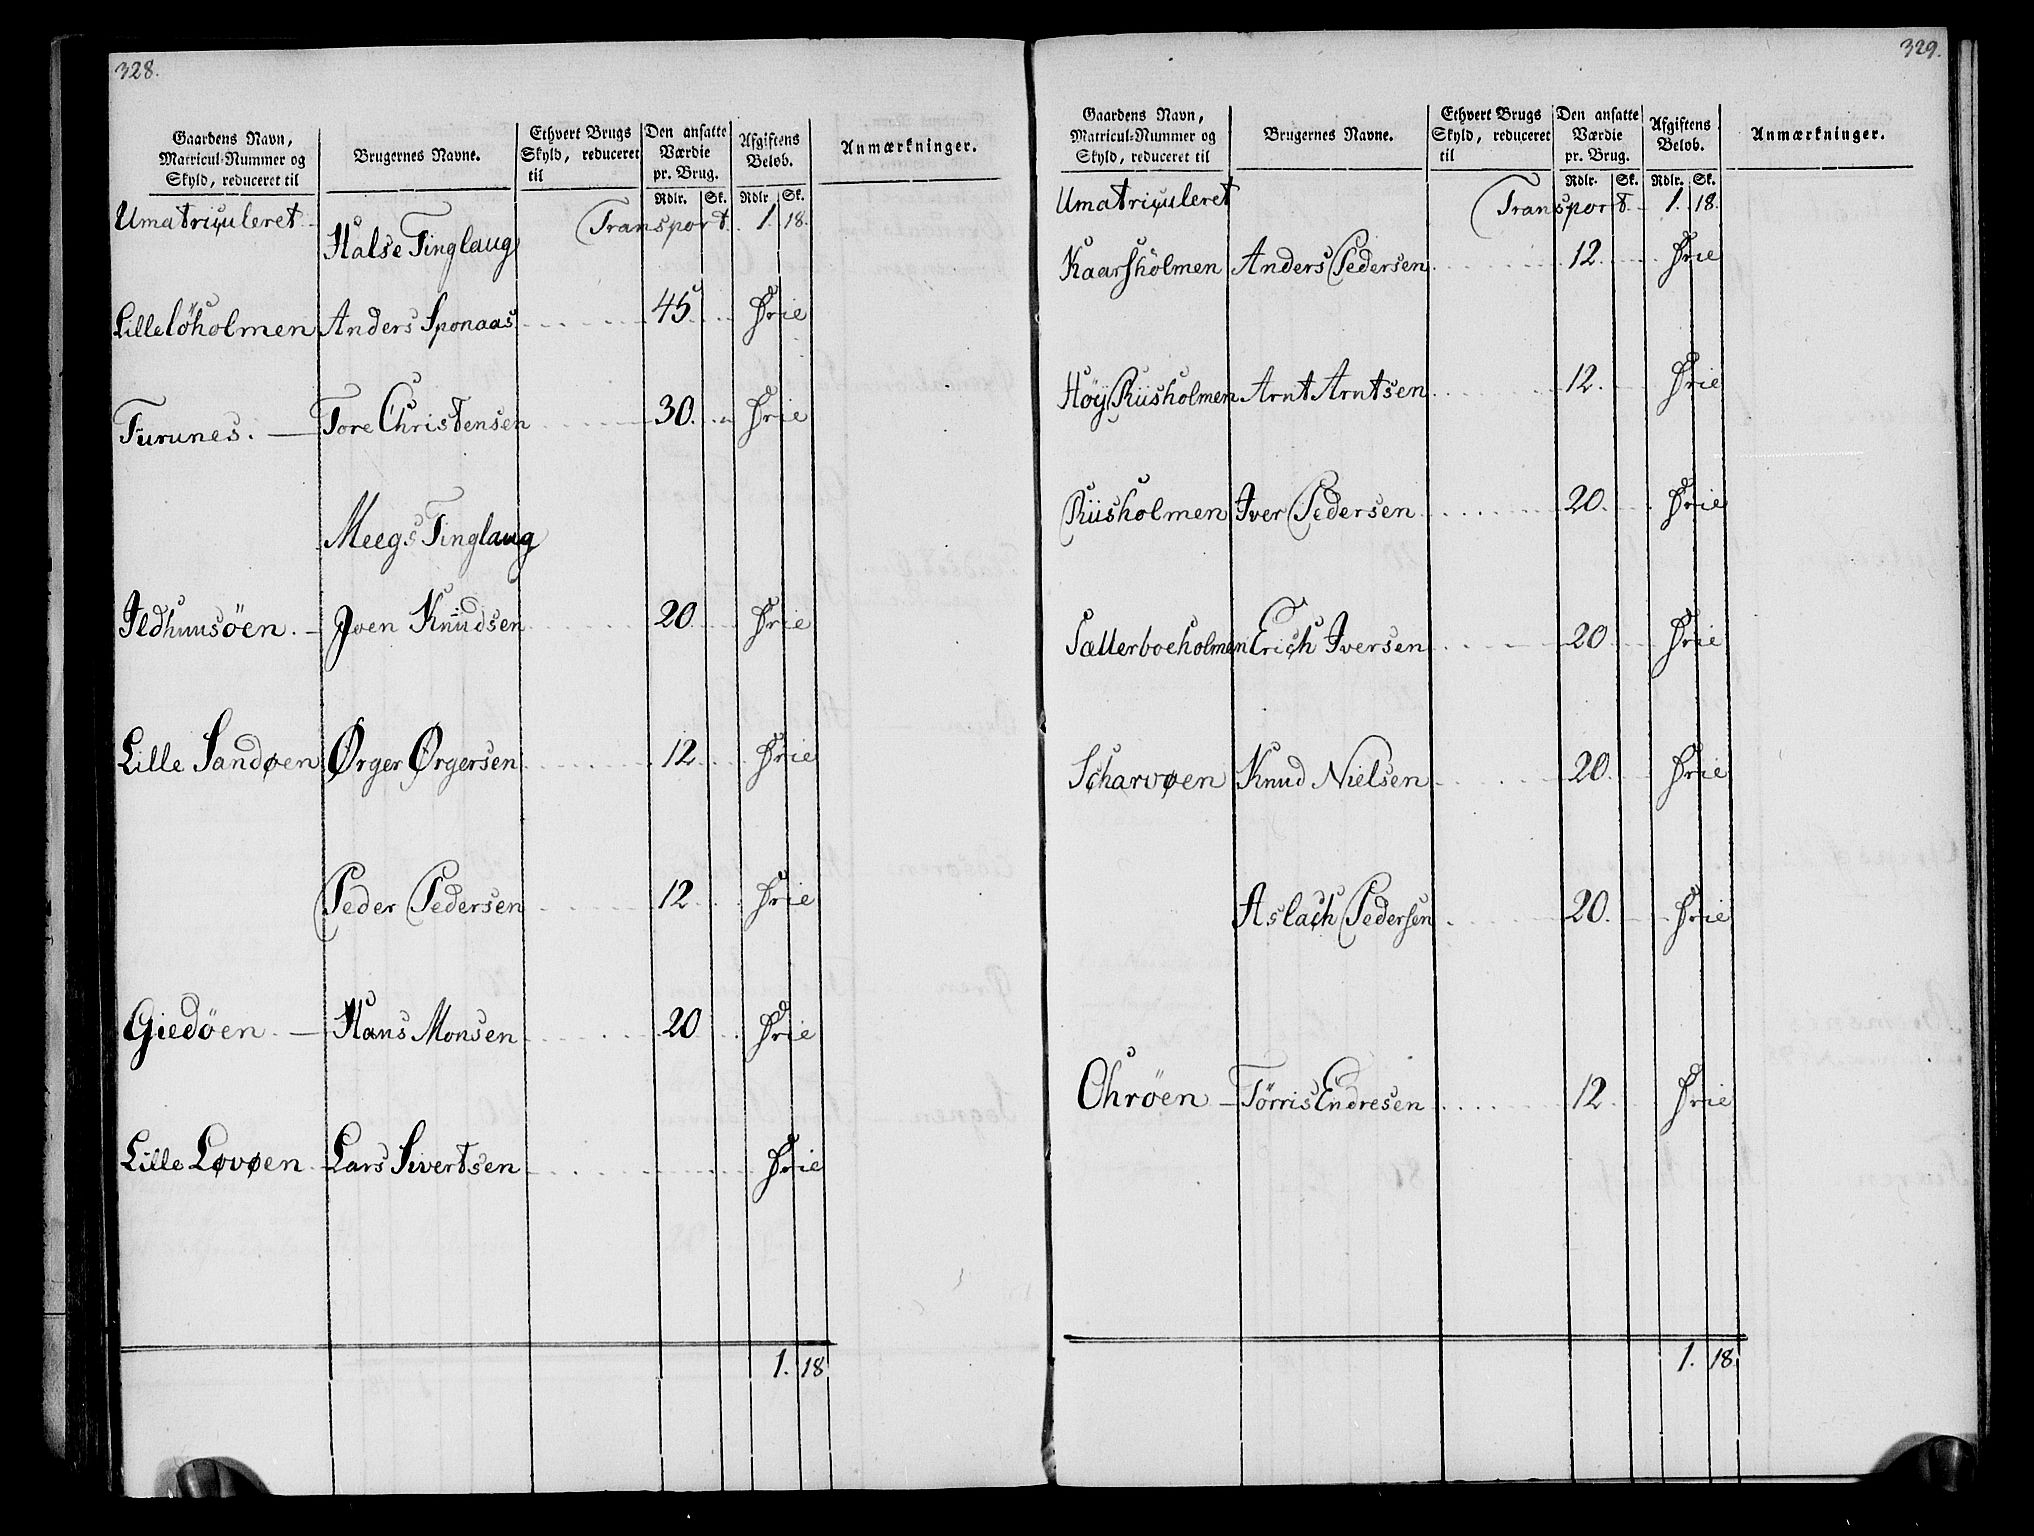 328.
Gaardens Navn, Matricul-Nummer og Skyld, reduceret til | Brugernes Navne. | Ethvert Brugs Skyld, reduceret til | Den ansatte Værdie pr. Brug. Rdlr. Sk. | Afgiftens Beløb. Rdlr. Sk. | Anmærkninger.
Umatriculeret Transport. 1. 18.
Halse Tinglaug
Lille löholmen Anders Sponaas 45. Frie
Furunes. Tore Christensen 30. Frie
Meegs Tinglaug
Ildhuusöen. Joen Knudsen 20. Frie
Lille Sandøen Ørger Ørgersen 12. Frie
Peder Pedersen 12. Frie
Giedöen. Hans Monsen 20 Frie
Lille Løvøen Lars Sivertsen Frie
1. 18
329.
Gaardens Navn, Matricul-Nummer og Skyld, reduceret til | Brugernes Navne. | Ethvert Brugs Skyld, reduceret til | Den ansatte Værdie pr. Brug. Rdlr. Sk. | Afgiftens Beløb. Rdlr. Sk. | Anmærkninger.
Umatriculeret Transport. 1. 18.
Kaarsholmen Anders Pedersen 12. Frie
Høy Riisholmen Arnt Arntsen 12. Frie
Riisholmen Iver Pedersen 20. Frie
Sætterboeholmen Erich Iversen 20 Frie
Scharvøen Knud Nielsen 20. Frie
Aslach Pedersen 20. Frie
Ohröen Tørris Endresen 12. Frie
1. 18